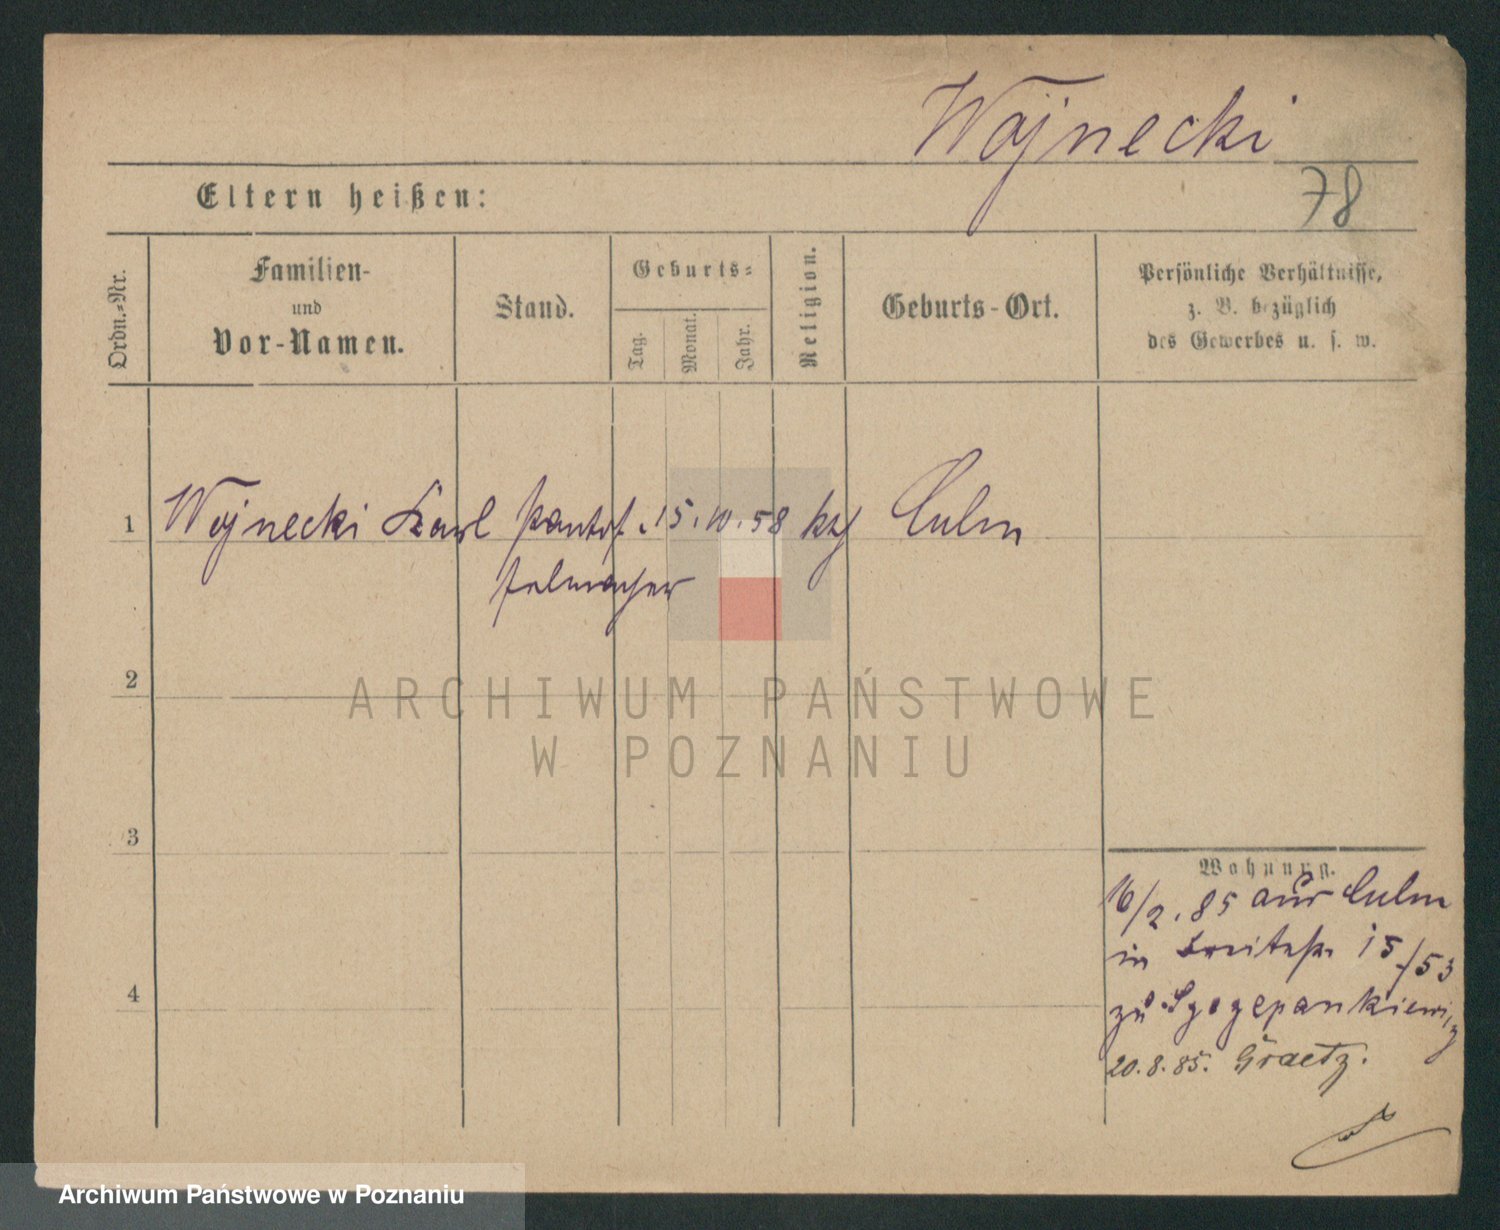 Wojnecki
78
Eltern heißen:
Ordn.-Nr.
Familien-
und
Vor-Namen.
Stand.
Geburts-
Tag.
Monat.
Jahr.
Religion.
Geburts-Ort.
Persönliche Verhältnisse,
z. B. bezüglich
des Gewerbes u. s. w.
1 Wojnecki Karl Pantof. 15. 10. 58 kth Culm
felmacher
2
ARCHIWUM PAŃSTWOWE
W POZNANIU
3
Wohnung.
16/2. 85 aus Culm
in Breitestr. 15/53
4
zu Szczepankiewicz
20.8.85. Graetz.
Archiwum Państwowe w Poznaniu